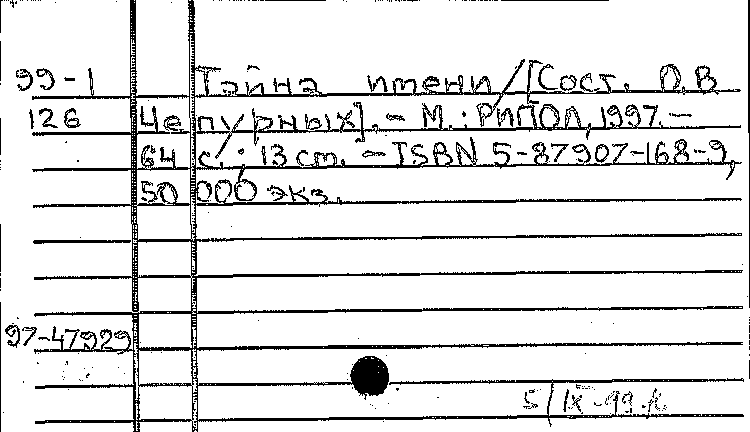 99-1 Тайна имени / [Сост. О.В
126 Чепурных]. - М.: РИПОЛ, 1997. -
64 с.; 13 см. - ISBN 5-87907-168-9,
50 000 экз.
97-47929
5/IX-99